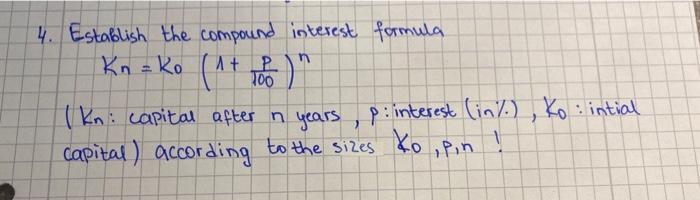 4. Establish the compound interest formula
Kn = Ko (1 + p/100)^n
(Kn: capital after n years, p: interest (in%), Ko: intial
capital) according to the sizes Ko, p, n !